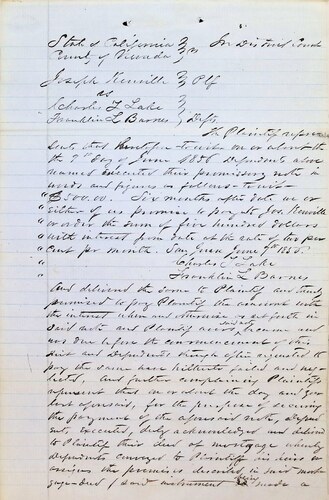 State of California } ss In District Court
County of Nevada }
Joseph Neuville } Plf
vs }
Charles F Lake }
Franklin L Barnes } Defts
The Plaintiff represents
that heretofore to wit on or about the
the 7th day of June 1856 Defendants above
named executed their promissory note in
words and figures as follows to wit
" $500.00. Six months after date we or
" either of us promise to pay to Jos Neuville
" or order the sum of five hundred dollars
" with interest from date at the rate of two per
" cent per month. June 7th 1856.
" Charles F Lake
" Franklin L Barnes
And delivered the same to Plaintiff and thereby
promised to pay Plaintiff the amount with
the interest when and otherwise as set forth in
said note and Plaintiff became and
now due before the commencement of this
suit and Defendants though often requested to
pay the same have hitherto failed and neg-
lected, And further complaining Plaintiff
represent that on about the day and year
last aforesaid, for the purpose of securing
the payment of the aforesaid note, Defend-
ants executed, duly acknowledged and delivered
to Plaintiff their deed of mortgage whereby
Defendants conveyed to Plaintiff in heirs or
assigns the premises described in said mort-
gage deed, said instrument being made a